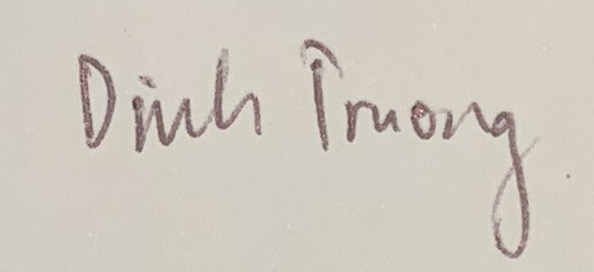 Dinh Truong